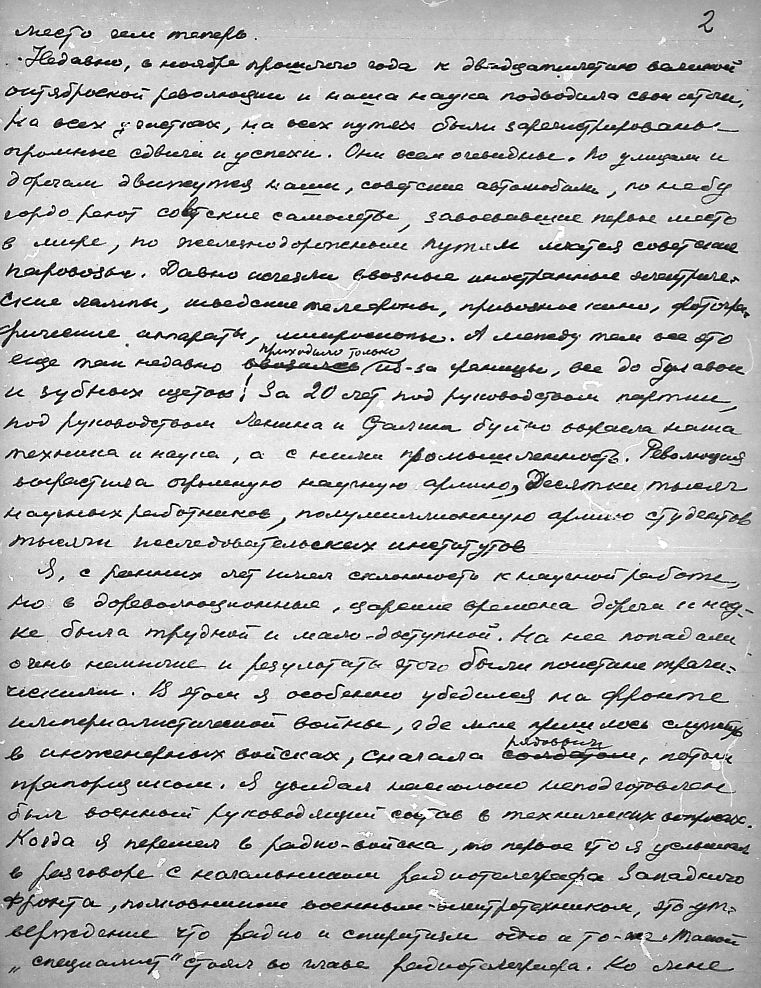 2
место чем теперь.
Недавно, в ноябре прошлого года к двадцатилетию великой
октябрьской революции и наша наука подводила свои итоги.
На всех участках, на всех путях были зарегистрированы
огромные сдвиги и успехи. Они всем очевидны. По улицам и
дорогам движутся наши, советские автомобили, по небу
гордо реют советские самолеты, завоевавшие первое место
в мире, по железнодорожным путям мчатся советские
паровозы. Давно исчезли ввозные иностранные электриче-
ские лампы, шведские телефоны, привозное кино, фотогра-
фические аппараты, микроскопы. А между тем все это
приходило только
еще так недавно ввозилось из-за границы, все до булавок
и зубных щеток! За 20 лет под руководством партии,
под руководством Ленина и Сталина буйно возрасла наша
техника и наука, а с ними промышленность. Революция
вырастила огромную научную армию, Десятки тысяч
научных работников, полумиллионную армию студентов
тысячи исследовательских институтов
Я, с ранних лет имел склонность к научной работе,
но в дореволюционные, царские времена дорога к нау-
ке была трудной и мало-доступной. На нее попадали
очень немногие и результаты этого были поистине траги-
ческими. В этом я особенно убедился на фронте
империалистической войны, где мне пришлось служить
рядовым
в инженерных войсках, сначала солдатом, потом
прапорщиком. Я увидал насколько неподготовлен
был военный руководящий состав в технических вопросах.
Когда я перешел в радио-войска, то первое что я услышал
в разговоре с начальником радиотелеграфа Западного
фронта, полковником военным-электротехником, это ут-
верждение что радио и спиритизм одно и то-же. Такой
„специалист" стоял во главе радиотелеграфа. Ко мне